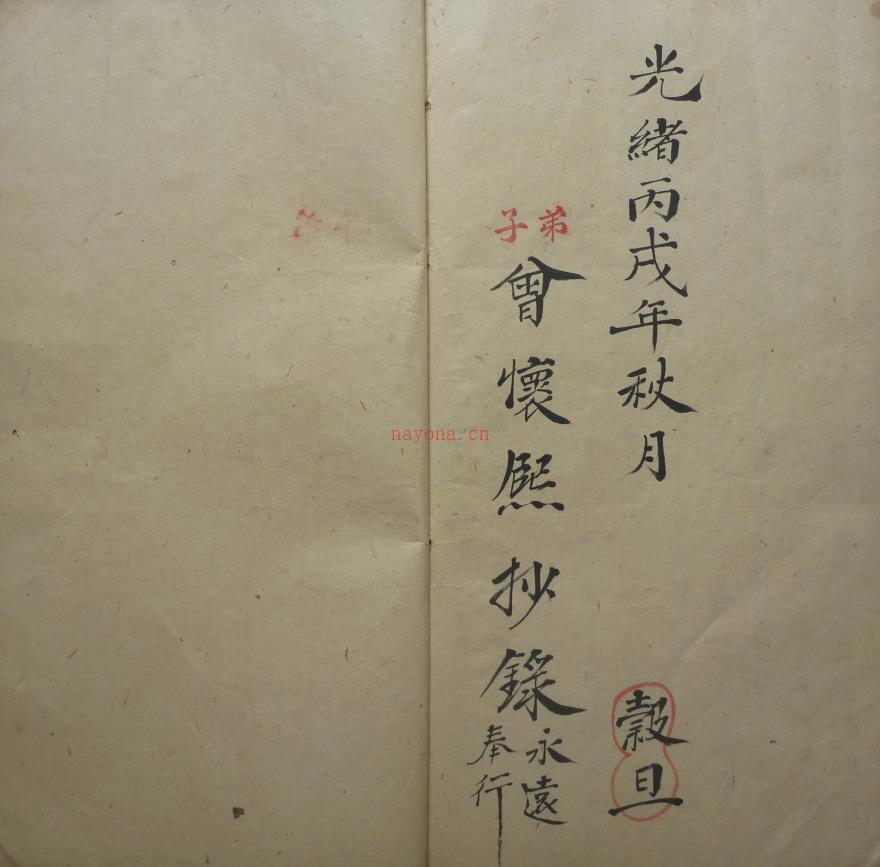 光緒丙戌年秋月 穀旦
弟子 曾懷熙抄錄 永遠奉行
nayona.cn